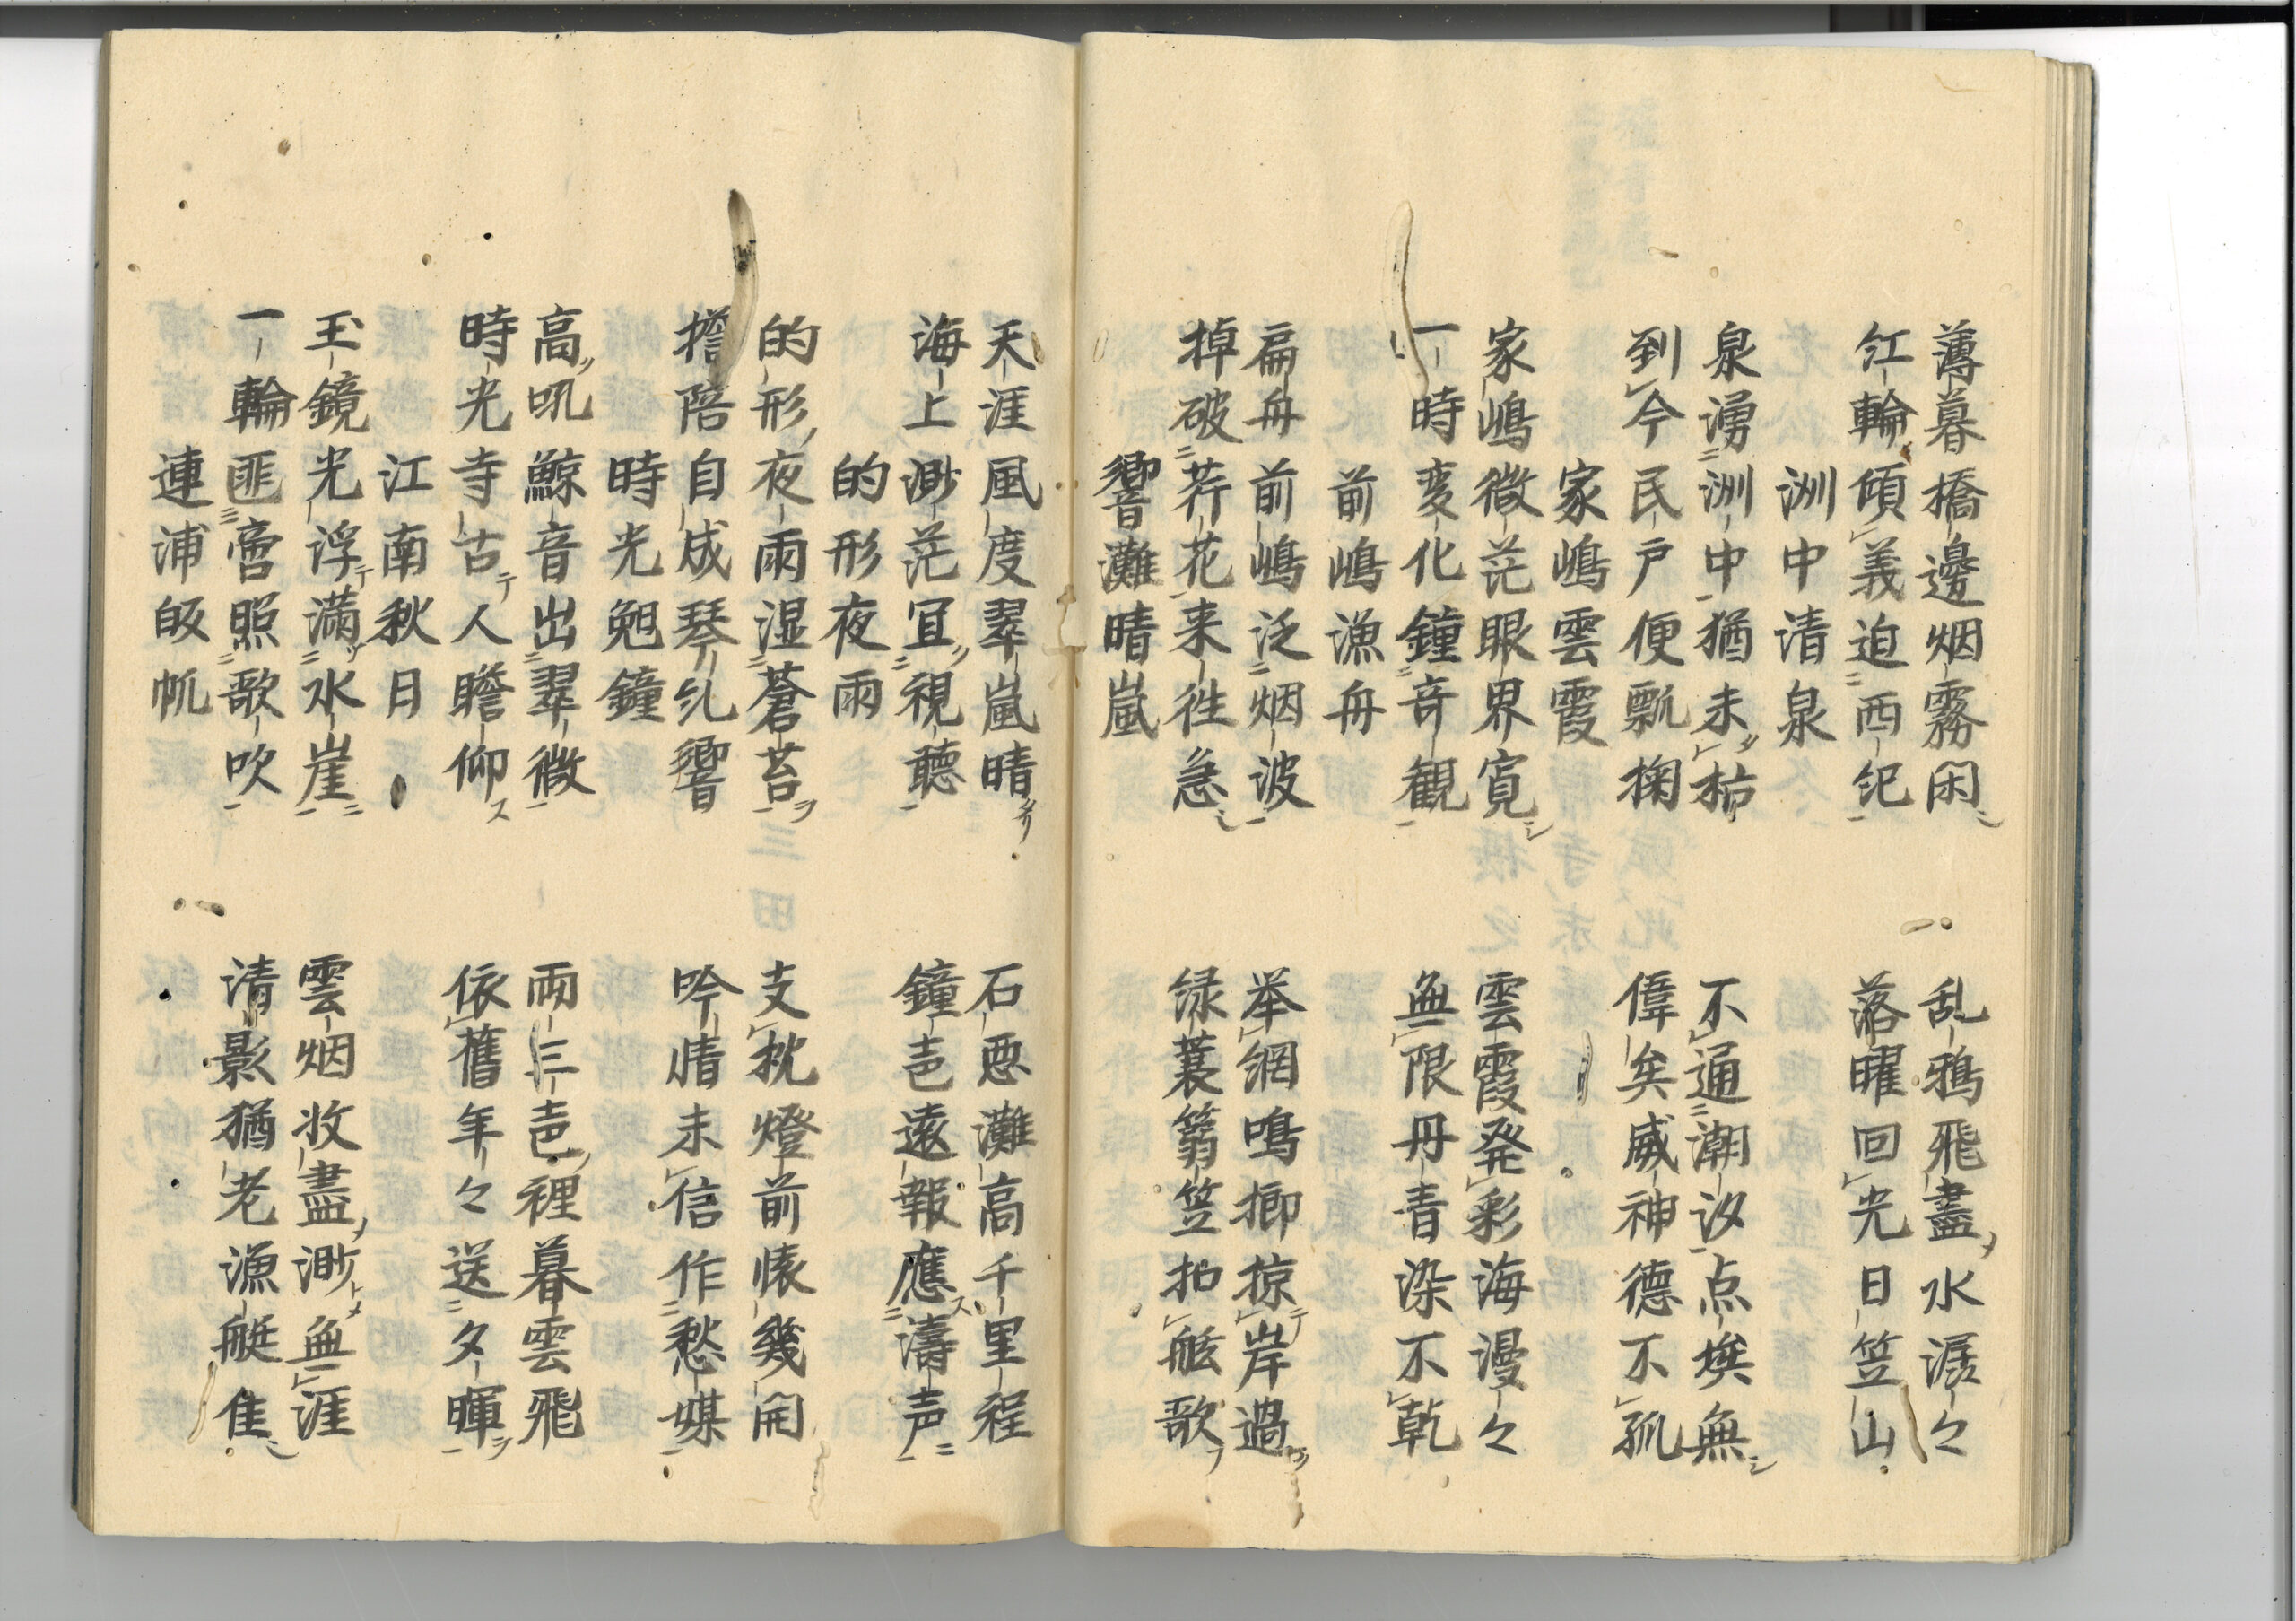 薄暮橋邊烟霧閑　乱鴉飛盡水潺々
紅輪傾義迫西紀　落曜回光日笠山
洲中清泉
泉湧洲中猶未枯　不通潮汐点埃無
到今民戸便瓢掬　偉矣威神徳不孤
家嶋雲霞
家嶋微茫眼界寛　雲霞発彩海漫々
一時変化鐘奇観　無限丹青染不乾
前嶋漁舟
扁舟前嶋泛烟波　挙網鳴榔掠岸過
掉破荇花来往急　緑蓑篛笠扣舷歌
響灘晴嵐
天涯風度翠嵐晴　石悪灘高千里程
海上渺茫冝視聴　鐘声遠報應濤声
的形夜雨
的形夜雨湿蒼苔　支枕燈前懐幾開
擔陪自成琴乱響　吟情未信作愁媒
時光晩鐘
高吼鯨音出翠微　両三声裡暮雲飛
時光寺古人瞻仰　依舊年々送夕暉
江南秋月
玉鏡光浮満水崖　雲烟收盡渺無涯
一輪匪啻照歌吹　清影猶老漁艇佳
連浦皈帆